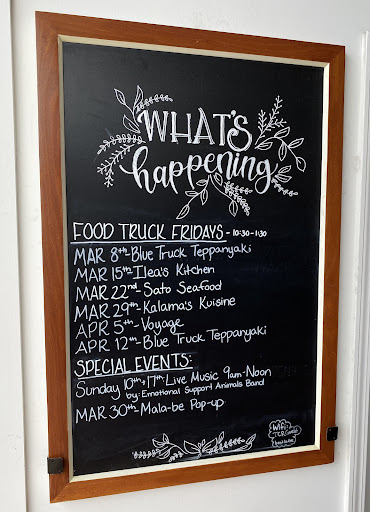 WHAT'S
happening
FOOD TRUCK FRIDAYS - 10:30-1:30
MAR 8th - Blue Truck Teppanyaki
MAR 15th - Ilea's Kitchen
MAR 22nd - Sato Seafood
MAR 29th - Kalama's Kuisine
APR 5th - Voyage
APR 12th - Blue Truck Teppanyaki
SPECIAL EVENTS:
Sunday 10th + 17th: Live Music 9am-Noon
by: Emotional Support Animals Band
MAR 30th - Mala-be Pop-up
Wifi